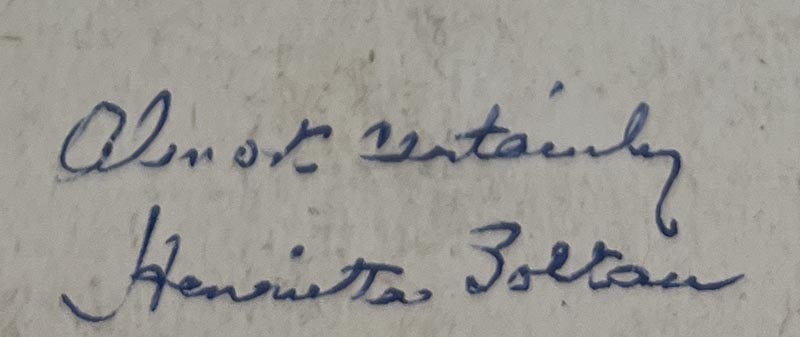 Almost certainly
Henrietta Boltau